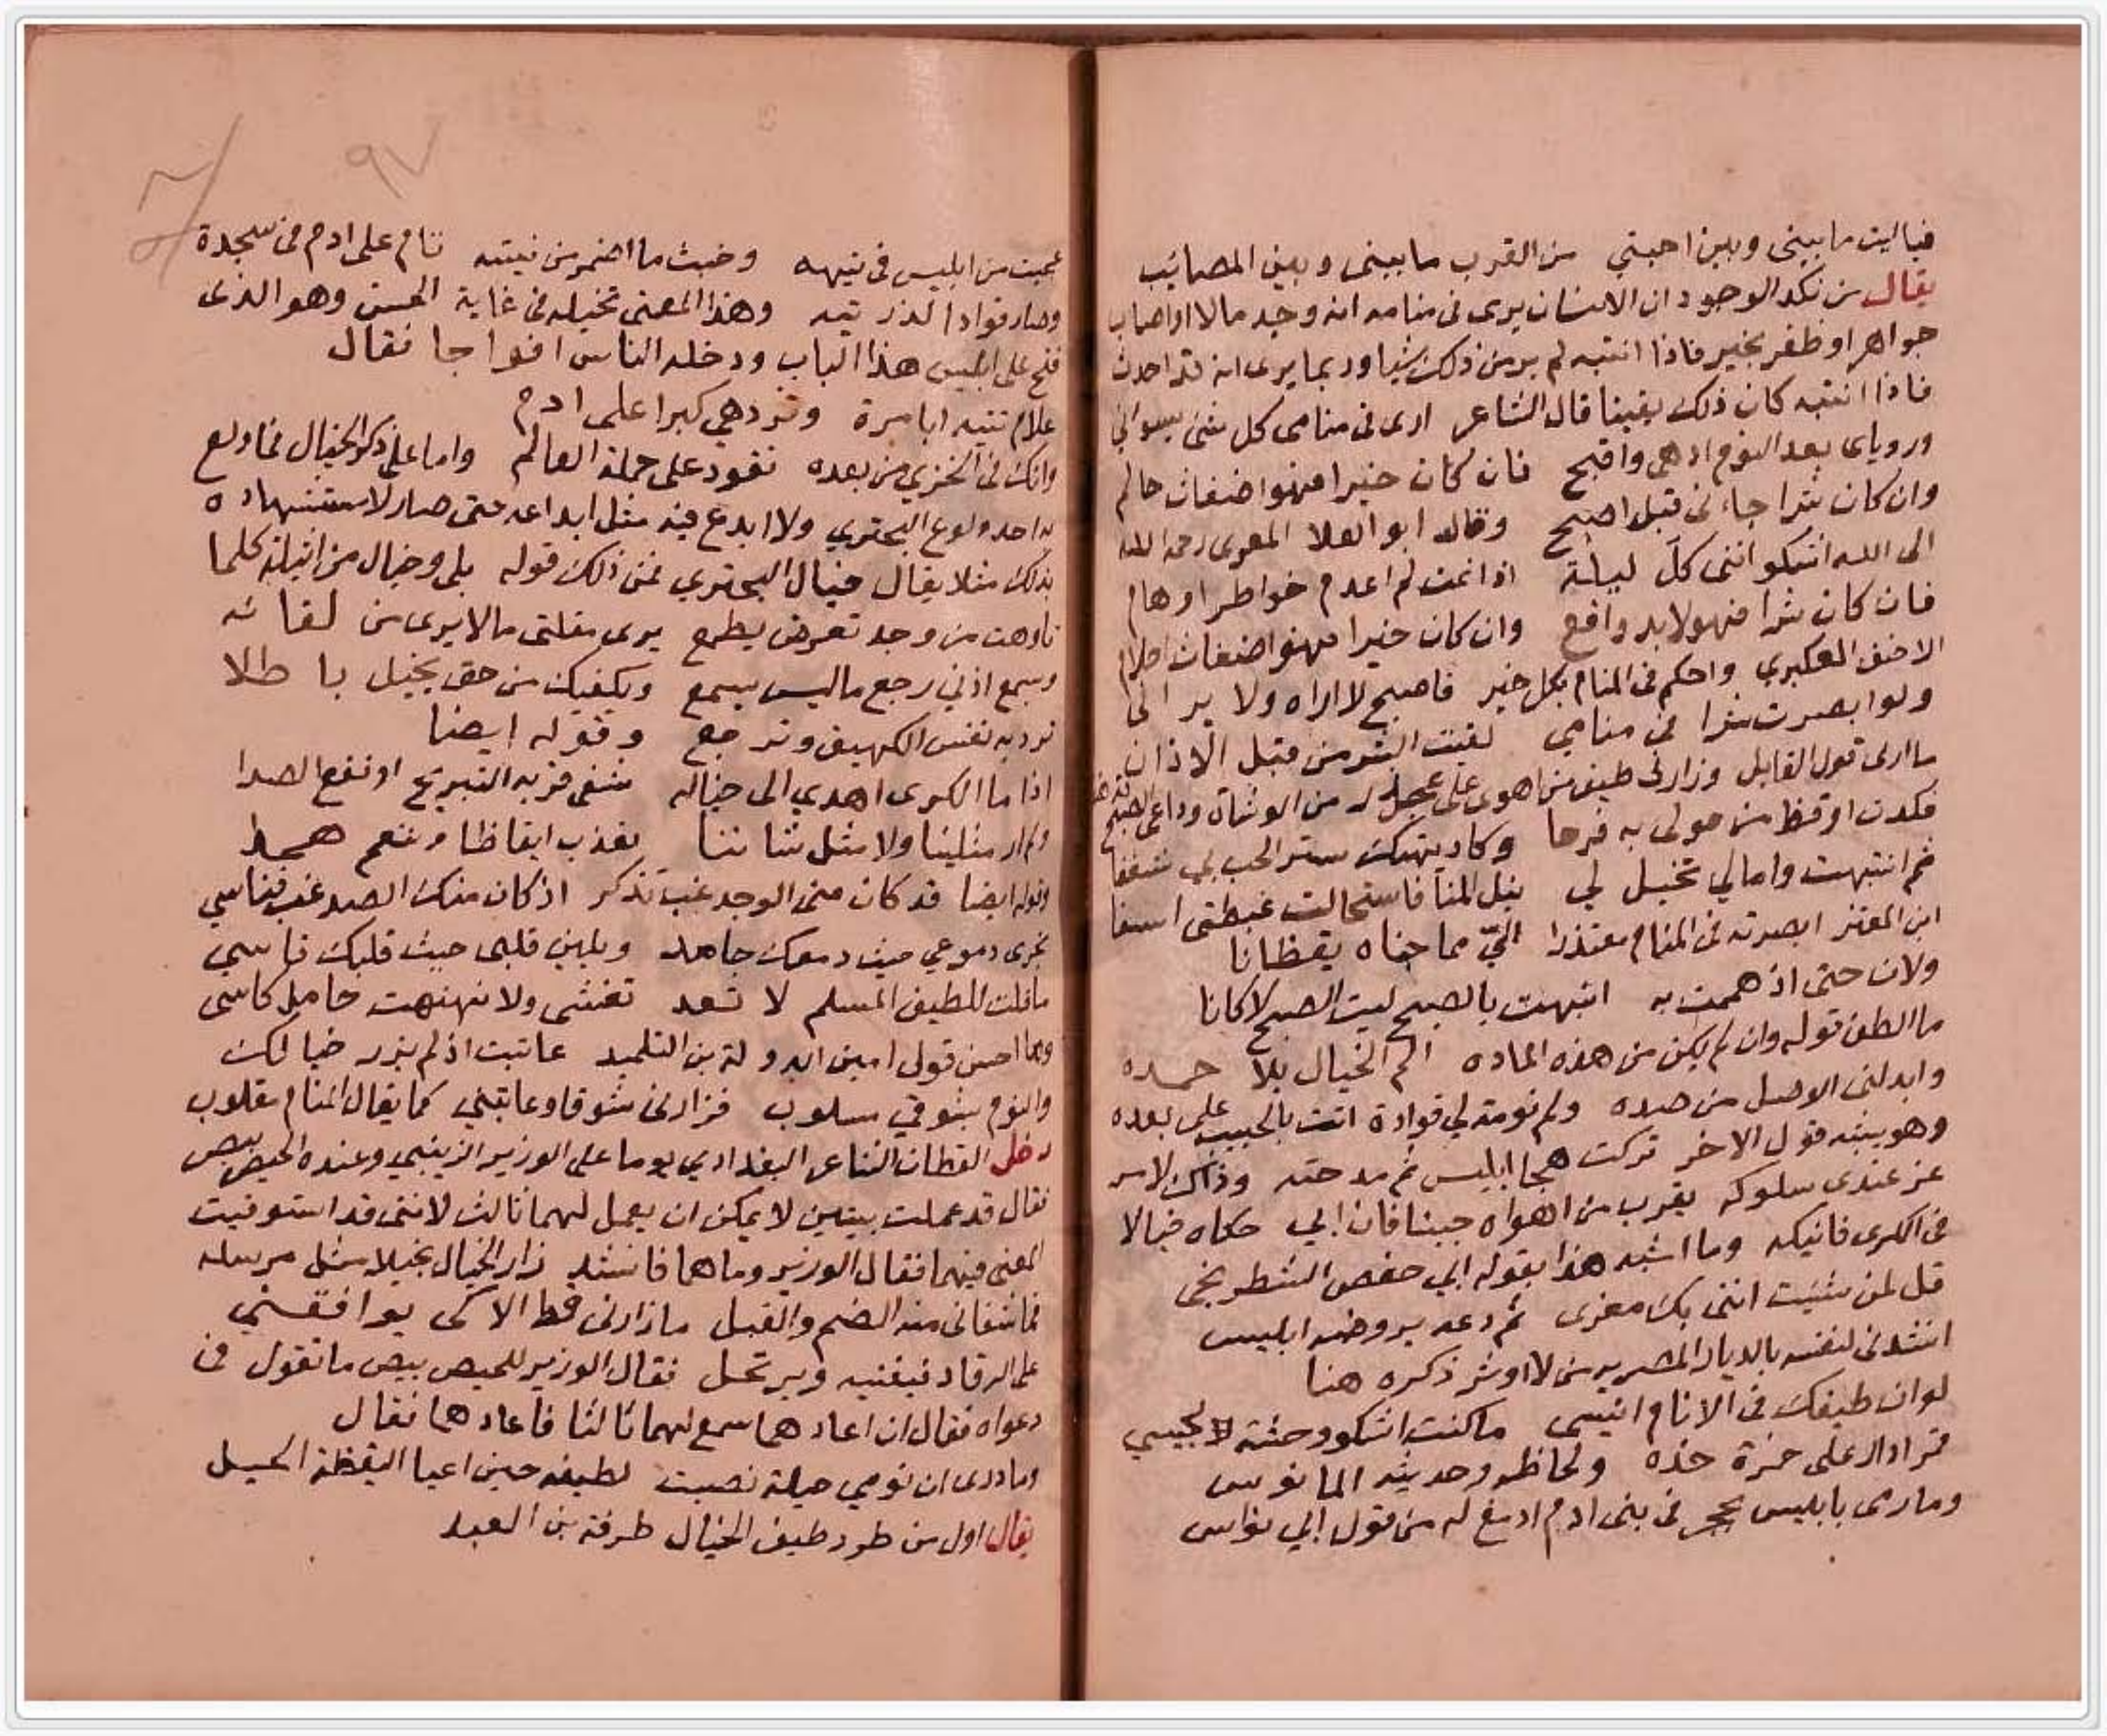 فياليت ما بينى وبين احبتي من القرب ما بينى وبين المصائب
يقال من نكد الوجود ان الانسان يرى فى منامه انه وجد مالا او اصاب
جواهر او ظفر بخير فاذا انتبه لم ير من ذلك شيا وربما يرى انه قد احدث
فاذا انتبه كان ذلك يقينا قال الشاعر ارى فى منامى كل شئ يسواني
ورویاى بعد النوم ادهى واقبح فان كان خيرا فهو اضغاث حالم
وان كان شرا جاءنى قبل اصبح وقال ابو العلا المعرى رحمه الله
الى الله اشكو اننى كل ليلة اذا نمت لم اعدم خواطر اوهام
فان كان شرا فهو لا بد واقع وان كان خيرا فهو اضغاث احلام
الاحنف العكبري واحكم فى المنام بكل خير فاصبح لا اراه ولا يرانى
ولو ابصرت شرا فى منامي لقيت الشر من قبل الاذان
ما ارى قول القايل وزارنى طيف من اهوى على عجل من الوشاة وداعى الصبح قد هتفا
فكدت اوقظ من حولى به فرحا وكاد يهتك ستر الحب بي شغفا
ثم انتبهت وامالي تخيل لي نيل المنا فاستحالت غبطتى اسفا
ابن المعتز ابصرته فى المنام معتذرا اليّ مما جناه يقظانا
ولان حتى اذ هممت به انتبهت بالصبح ليت الصبح لا كانا
ما الطف قوله وان لم يكن من هذه الماده الم الخيال بلا حمده
وابدلنى الوصل من صده ولم نومة لي قوادة اتت بالحبيب على بعده
وهو يشبه قول الاخر تركت هجا ابليس ثم مدحته وذاك لامر
عز عندى سلوكه يقرب من اهواه حينا فان ابي حكاه خيالا
فى الكرى فانيكه وما اشبه هذا بقول ابي حفص الشطرنجى
قل لمن شئت اننى بك مغرى ثم دعه يروضه ابليس
انشدنى لنفسه بالديار المصريه من لا اوثر ذكره هنا
لو ان طيفك فى الانام انيسى ما كنت اشكو وحشة لجليسي
قرادال على حمرة خده ولحاظه وحديثه المانوس
وما رمى بابليس بحجر فى بنى ادم ادمغ له من قول ابي نواس
عجبت من ابليس فى تيهه وخبث ما اضمر من نيته تاه على ادم فى سجدة
وصار قوادا لذريته وهذا المعنى تخيله فى غاية الحسن وهو الذى
فتح على ابليس هذا الباب ودخله الناس افواجا فقال
علام تتيه ابا مرة وتزدهي كبرا على ادم
وانك فى الخزي من بعده تقود على جملة العالم واما على ذكر الخيال فما ولع
به احد ولوع البحتري ولا ابدع فيه مثل ابداعه حتى صار لاستشهاده
بذلك مثلا يقال خيال البحتري فمن ذلك قوله بلى وخيال من اثيلة كلما
تاوهت من وجد تعرض يطمع يرى مقلتى ما لا يرى من لقائه
وسمع اذني رجع ما ليس يسمع ويكفيك من حق تخيل باطلا
ترد به نفس الكهيف وترجع وقوله ايضا
اذا ما الكرى اهدي الى خياله شفى قربه التبريح او نقع الصدا
ولم ار مثلينا ولا مثل شاننا نعذب ايقاظا وننعم هجدا
وقوله ايضا قد كان منى الوجد غب تذكر اذ كان منك الصد غب تناسي
تجرى دموعي حيث دمعك جامد ويلين قلبى حيث قلبك قاسي
ما قلت للطيف المسلم لا تعد تغشى ولا نهنهت حامل كاسى
وما احسن قول امين الدولة بن التلميد عاتبت اذ لم يزر خيالك
والنوم بشوقي مسلوب فزارنى شوقا وعاتبني كما يقال المنام مقلوب
دخل القطان الشاعر البغدادي يوما على الوزير الزينبي وعنده الحيص بيص
فقال قد عملت بيتين لا يمكن ان يعمل لهما ثالث لانني قد استوفيت
المعنى فيهما فقال الوزير وما هما فانشد زار الخيال بخيلا مثل مرسله
فما شفانى منه الضم والقبل ما زارنى قط الا كى يوافقني
على الرقاد فينفيه ويرتحل فقال الوزير للحيص بيص ما تقول فى
دعواه فقال ان اعادهما سمع لهما ثالثا فاعادهما فقال
وما درى ان نومي حيلة نصبت لطيفه حين اعيا اليقظة الحيل
يقال اول من طرد طيف الخيال طرفة بن العبد